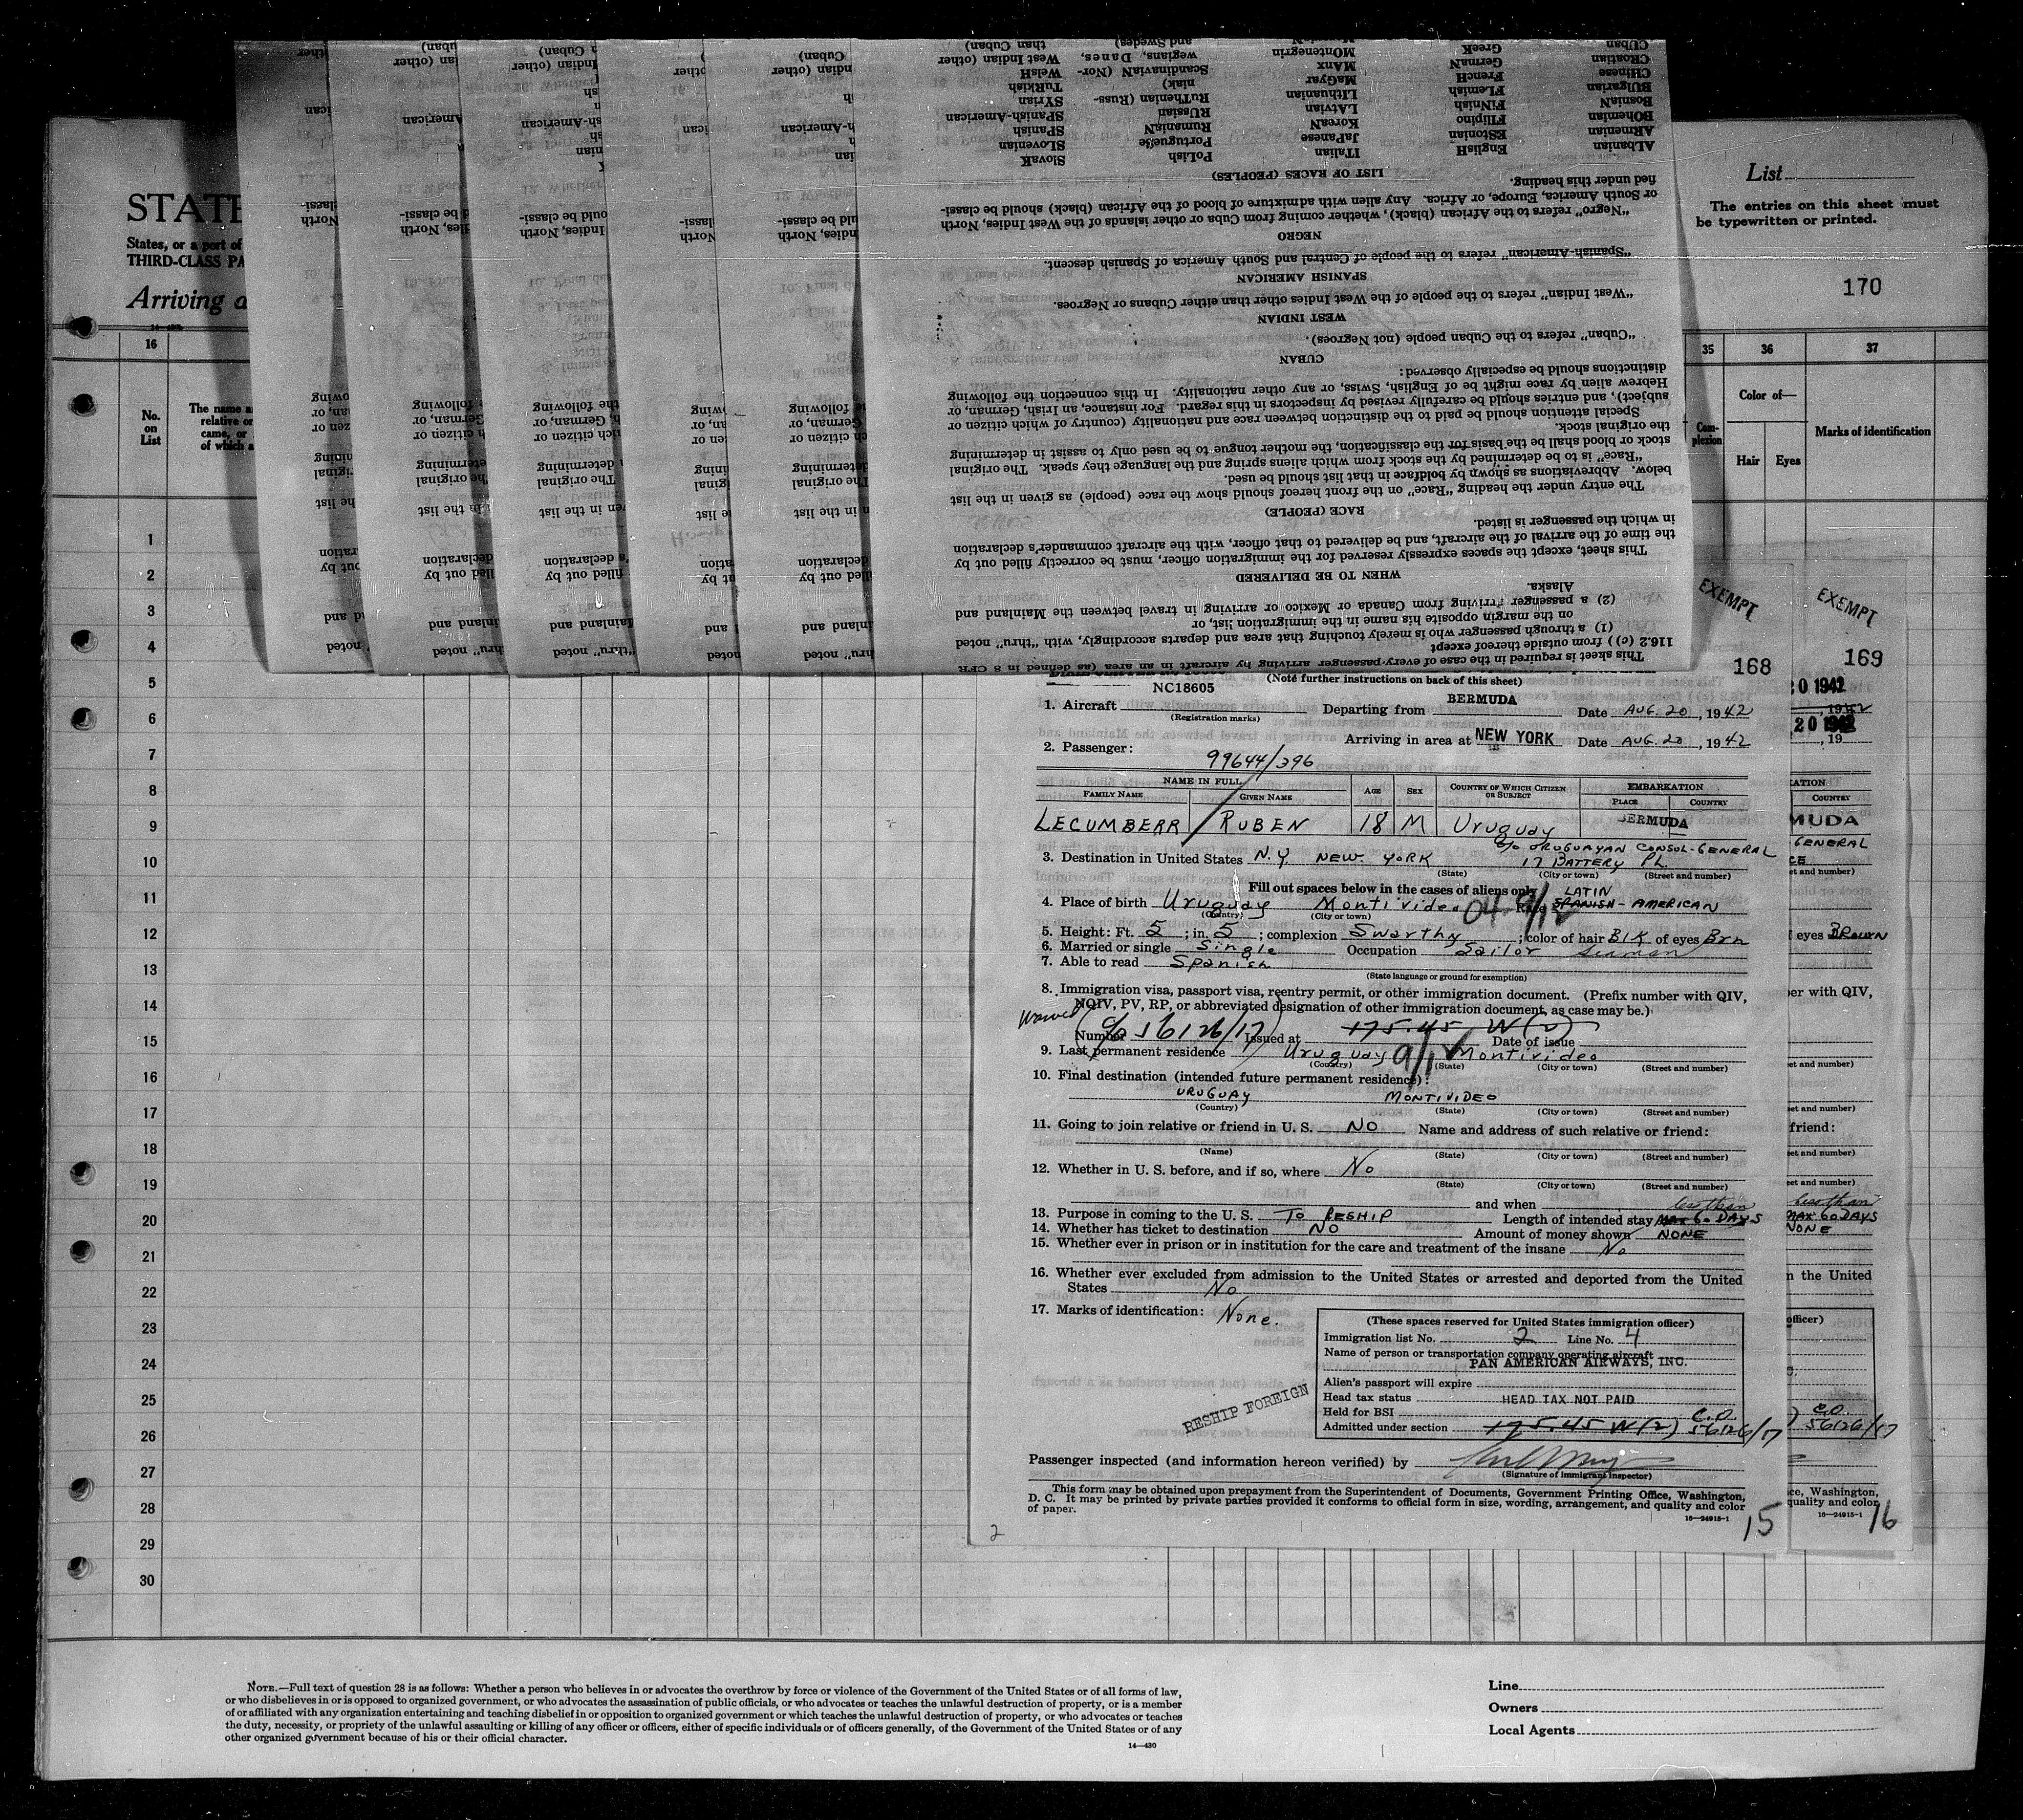 STATE
States, or a port of
THIRD-CLASS PA
Arriving a
List
The entries on this sheet must
be typewritten or printed.
170
16
35
36
37
No.
on
List
The name a
relative or
came, or
of which a
Com-
plexion
Color of—
Hair
Eyes
Marks of identification
1
2
3
4
5
6
7
8
9
10
11
12
13
14
15
16
17
18
19
20
21
22
23
24
25
26
27
28
29
30
This sheet is required in the case of every passenger arriving by aircraft in an area (as defined in 8 CFR
116.2 (c)) from outside thereof except
(1) a through passenger who is merely touching that area and departs accordingly, with "thru" noted
on the margin opposite his name in the immigration list, or
(2) a passenger arriving from Canada or Mexico or arriving in travel between the Mainland and
Alaska.
WHEN TO BE DELIVERED
This sheet, except the spaces expressly reserved for the immigration officer, must be correctly filled out by
the time of the arrival of the aircraft, and be delivered to that officer, with the aircraft commander's declaration
in which the passenger is listed.
RACE (PEOPLE)
The entry under the heading "Race" on the front hereof should show the race (people) as given in the list
below. Abbreviations as shown by boldface in that list should be used.
"Race" is to be determined by the stock from which aliens spring and the language they speak. The original
stock or blood shall be the basis for the classification, the mother tongue to be used only to assist in determining
the original stock.
Special attention should be paid to the distinction between race and nationality (country of which citizen or
subject), and entries should be carefully revised by inspectors in this regard. For instance, an Irish, German, or
Hebrew alien by race might be of English, Swiss, or any other nationality. In this connection the following
distinctions should be especially observed:
CUBAN
"Cuban" refers to the Cuban people (not Negroes).
WEST INDIAN
"West Indian" refers to the people of the West Indies other than either Cubans or Negroes.
SPANISH AMERICAN
"Spanish-American" refers to the people of Central and South America of Spanish descent.
NEGRO
"Negro" refers to the African (black), whether coming from Cuba or other islands of the West Indies, North
or South America, Europe, or Africa. Any alien with admixture of blood of the African (black) should be classi-
fied under this heading.
LIST OF RACES (PEOPLES)
ALbanian EnglisH ITalian PoLish SlovaK
ARmenian EStonian JaPanese Portugueſse SLOvenian
BOhemian FIlipino KoreaN RumaniaN SPanish
BosniaN FINnish LAtvian RUssian SPanish-American
BUlgarian FLemish LIthuanian RuThenian (Russ- SYrian
niak)
CHinese FrencH MaGyar ScandinaviaN (Nor- TuRkish
CRoatian GermaN MAnx wegians, Danes, WelsH
CUban GreeK MOntenegrin and Swedes) West Indian (other
than Cuban)
EXEMPT
EXEMPT
168
169
NC18605
(Note further instructions on back of this sheet)
1. Aircraft (Registration marks) Departing from BERMUDA Date AUG. 20, 1942
Arriving in area at NEW YORK Date AUG. 20, 1942
2. Passenger:
99644/396
NAME IN FULL
FAMILY NAME GIVEN NAME AGE SEX COUNTRY OF WHICH CITIZEN OR SUBJECT EMBARKATION
PLACE COUNTRY
LECUMBERR RUBEN 18 M Uruguay BERMUDA
c/o URUGUAYAN CONSUL-GENERAL
3. Destination in United States N.Y. NEW YORK 17 BATTERY PL.
(State) (City or town) (Street and number)
Fill out spaces below in the cases of aliens only
LATIN
4. Place of birth Uruguay Montivideo Race SPANISH-AMERICAN
(Country) (City or town)
5. Height: Ft. 5; in. 5; complexion Swarthy; color of hair Blk of eyes Brn
6. Married or single Single Occupation Sailor Seaman
7. Able to read Spanish
(State language or ground for exemption)
8. Immigration visa, passport visa, reentry permit, or other immigration document. (Prefix number with QIV,
NQIV, PV, RP, or abbreviated designation of other immigration document, as case may be.)
Waived
Number 56126/17 Issued at 175.45 W(2) Date of issue
9. Last permanent residence Uruguay Montivideo
(Country) (State) (City or town) (Street and number)
10. Final destination (intended future permanent residence):
URUGUAY MONTIVIDEO
(Country) (State) (City or town) (Street and number)
11. Going to join relative or friend in U. S. NO Name and address of such relative or friend:
(Name) (State) (City or town) (Street and number)
12. Whether in U. S. before, and if so, where No
(State) (City or town) (Street and number)
and when
less than
13. Purpose in coming to the U. S. TO RESHIP Length of intended stay MAX 60 DAYS
14. Whether has ticket to destination NO Amount of money shown NONE
15. Whether ever in prison or in institution for the care and treatment of the insane No
16. Whether ever excluded from admission to the United States or arrested and deported from the United
States No
17. Marks of identification: None.
(These spaces reserved for United States immigration officer)
Immigration list No. 2 Line No. 4
Name of person or transportation company operating aircraft
PAN AMERICAN AIRWAYS, INC.
Alien's passport will expire
Head tax status HEAD TAX NOT PAID
Held for BSI C.O.
Admitted under section 175.45 W(2) 56126/17
RESHIP FOREIGN
Passenger inspected (and information hereon verified) by
(Signature of immigrant inspector)
This form may be obtained upon prepayment from the Superintendent of Documents, Government Printing Office, Washington,
D. C. It may be printed by private parties provided it conforms to official form in size, wording, arrangement, and quality and color
of paper.
16—24915-1
15
2
20 1942
20 1942
, 19
KATION
COUNTRY
MUDA
GENERAL
eet and number)
f eyes BROWN
er with QIV,
eet and number)
eet and number)
friend:
eet and number)
eet and number)
less than
MAX 60 DAYS
NONE
n the United
officer)
C.O.
56126/17
ce, Washington,
quality and color
16—24915-1
16
NOTE.—Full text of question 28 is as follows: Whether a person who believes in or advocates the overthrow by force or violence of the Government of the United States or of all forms of law,
or who disbelieves in or is opposed to organized government, or who advocates the assassination of public officials, or who advocates or teaches the unlawful destruction of property, or is a member
of or affiliated with any organization entertaining and teaching disbelief in or opposition to organized government or which teaches the unlawful destruction of property, or who advocates or teaches
the duty, necessity, or propriety of the unlawful assaulting or killing of any officer or officers, either of specific individuals or of officers generally, of the Government of the United States or of any
other organized government because of his or their official character.
14—430
Line
Owners
Local Agents